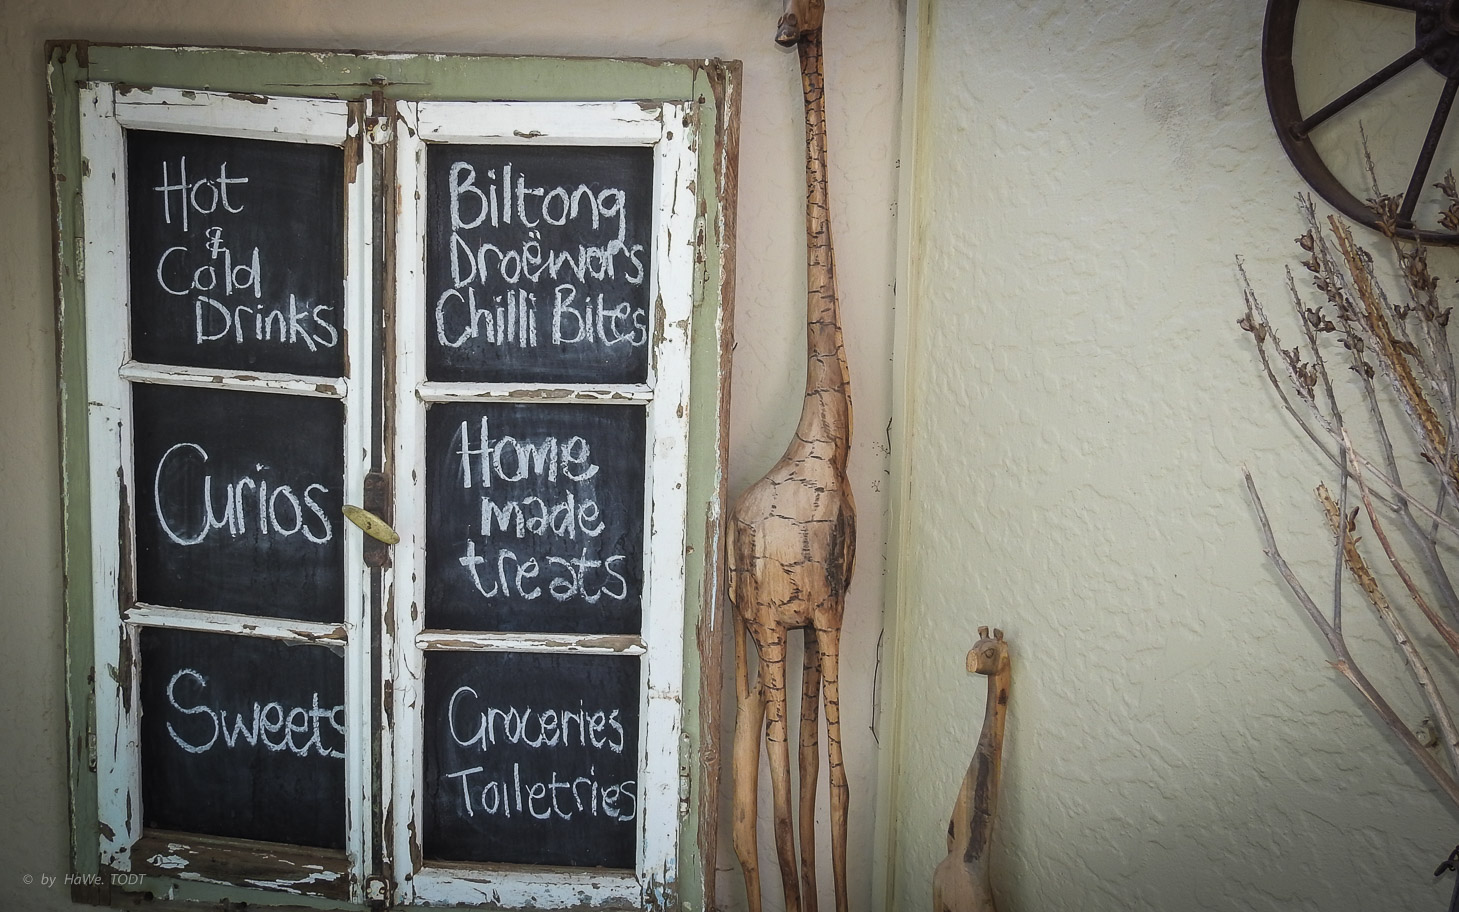 Hot
&
Cold
Drinks
Curios
Sweets
Biltong
Droëwors
Chilli Bites
Home
made
treats
Groceries
Toiletries
© by HaWe. TODT